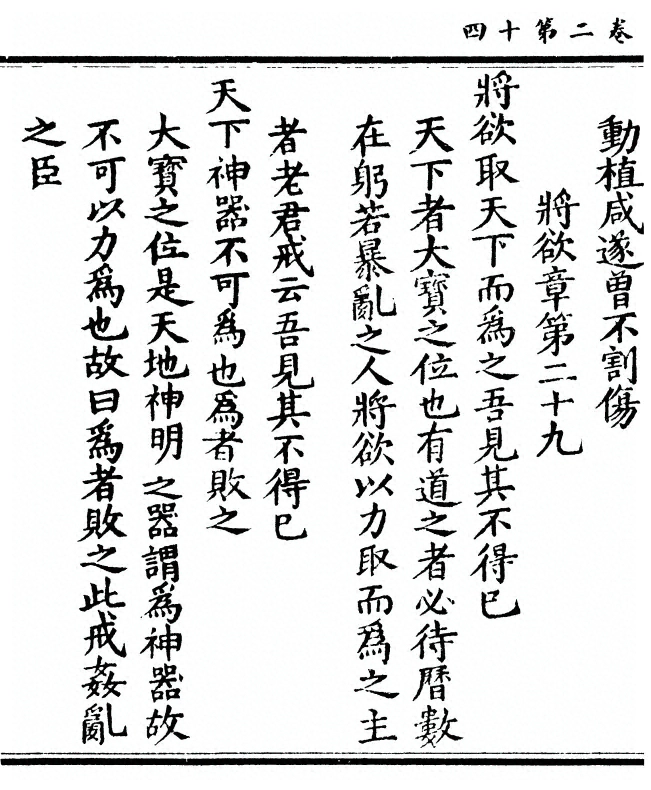 卷二第十四
動植咸遂曾不割傷
將欲章第二十九
將欲取天下而爲之吾見其不得已
天下者大寶之位也有道之者必待曆數
在躬若暴亂之人將欲以力取而爲之主
者老君戒云吾見其不得已
天下神器不可爲也爲者敗之
大寶之位是天地神明之器謂爲神器故
不可以力爲也故曰爲者敗之此戒姦亂
之臣